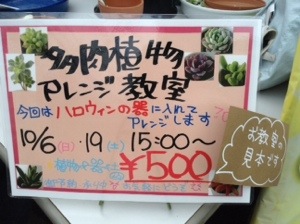 多肉植物
アレンジ教室
今回はハロウィンの器に入れて
アレンジします
10/6(日)・19(土) 15:00〜
植物と器
¥500
お教室の
見本です!